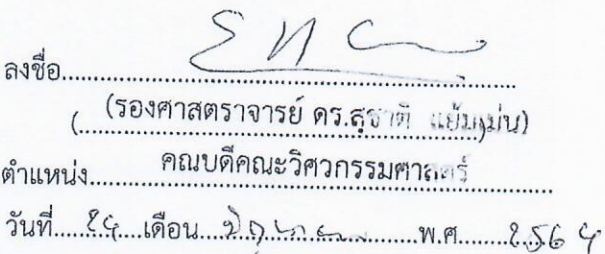 ลงชื่อ
(รองศาสตราจารย์ ดร.สุชาติ แย้มเม่น)
ตำแหน่ง คณบดีคณะวิศวกรรมศาสตร์
วันที่ 24 เดือน พ.ศ. 2564